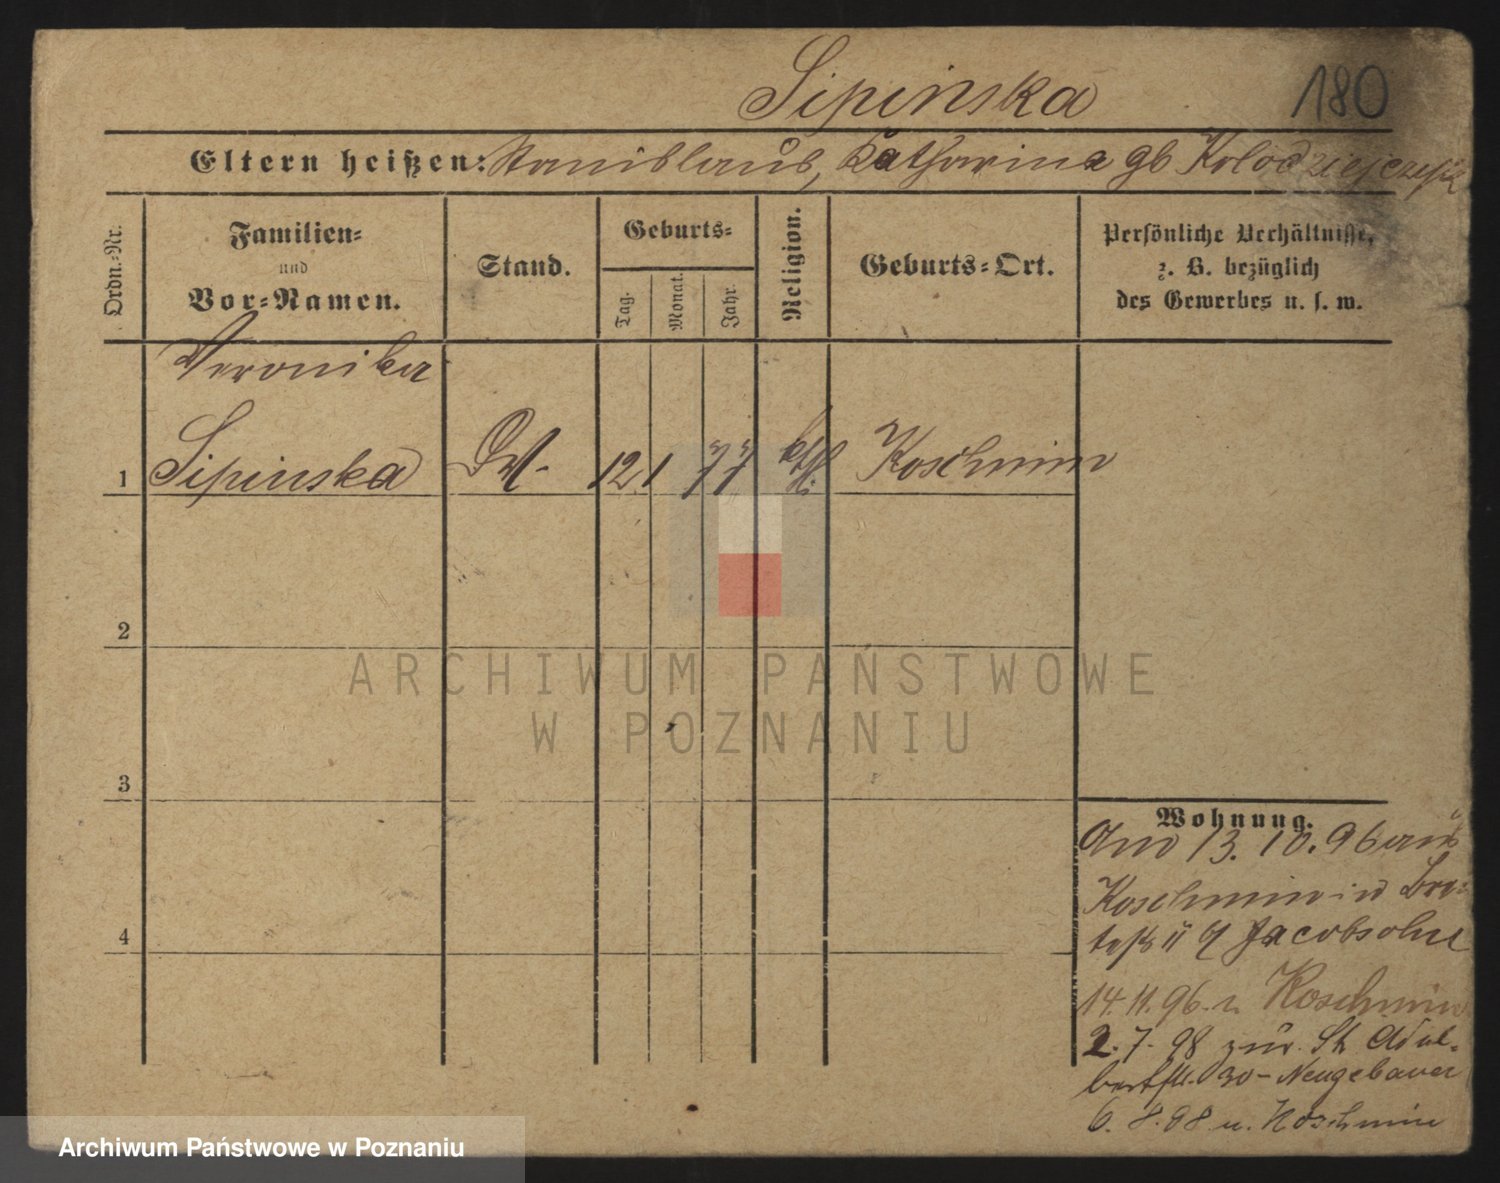 Sipinska 180
Eltern heißen: Stanislaus, Katharina gb Kolodziejczyk
Ordn.-Nr.
Familien-
und
Vor-Namen.
Stand.
Geburts-
Tag.
Monat.
Jahr.
Religion.
Geburts-Ort.
Persönliche Verhältnisse,
z. B. bezüglich
des Gewerbes u. s. w.
Veronika
1 Sipinska 12 1 77 kth. Koschmin
2
3
4
ARCHIWUM PAŃSTWOWE
W POZNANIU
Wohnung.
Am 13. 10. 96 aus
Koschmin
Jacobsohn
14. 11. 96. n. Koschmin
2. 7. 98 zur. St. Adal-
bertstr. 30 - Neugebauer
6. 8. 98 n. Koschmin
Archiwum Państwowe w Poznaniu